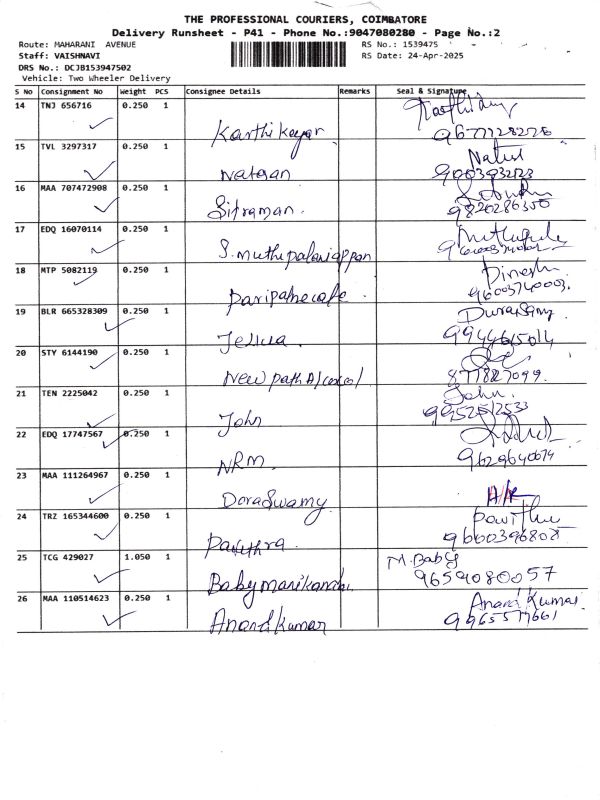 THE PROFESSIONAL COURIERS, COIMBATORE
Delivery Runsheet - P41 - Phone No.:9047080280 - Page No.:2
Route: MAHARANI AVENUE RS No.: 1539475
Staff: VAISHNAVI RS Date: 24-Apr-2025
DRS No.: DCJB153947502
Vehicle: Two Wheeler Delivery
S No Consignment No Weight PCS Consignee Details Remarks Seal & Signature
14 TNJ 656716 0.250 1
Karthikeyan
15 TVL 3297317 0.250 1
Natesan
16 MAA 707472908 0.250 1
Sitraman.
17 EDQ 16070114 0.250 1
S.muthupalaniappan
18 MTP 5082119 0.250 1 Dinesh
9600370003.
19 BLR 665328309 0.250 1 Duraisamy
9944615014
20 STY 6144190 0.250 1
877827099.
New path
21 TEN 2225042 0.250 1 John.
John 9952512533
22 EDQ 17747567 0.250 1
NRM. 9629640674
23 MAA 111264967 0.250 1
DoraSwamy
24 TRZ 165344600 0.250 1
Pavithra. 9600396808
25 TCG 429027 1.050 1 M.Baby
9659080057
Babymanikandan
26 MAA 110514623 0.250 1 Anand Kumar.
Anandkumar